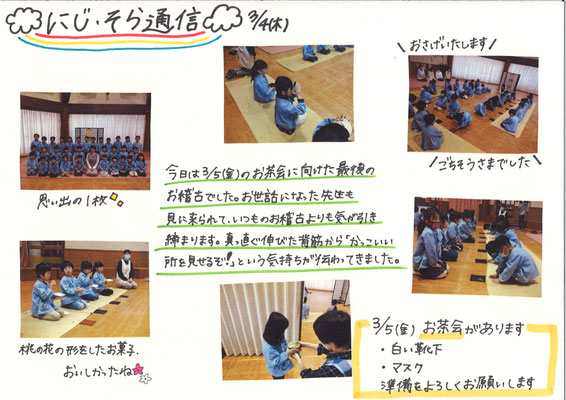 にじ・そら通信
3/4(木)
\おさげいたします/
/ごちそうさまでした\
思い出の1枚
今日は3/5(金)のお茶会に向けた最後の
お稽古でした。お世話になった先生も
見に来られて、いつものお稽古よりも気が引き
締まります。真っ直ぐ伸びた背筋から「かっこいい
所を見せるぞ!」という気持ちが伝わってきました。
桃の花の形をしたお菓子、
おいしかったね
3/5(金) お茶会があります
・白い靴下
・マスク
準備をよろしくお願いします